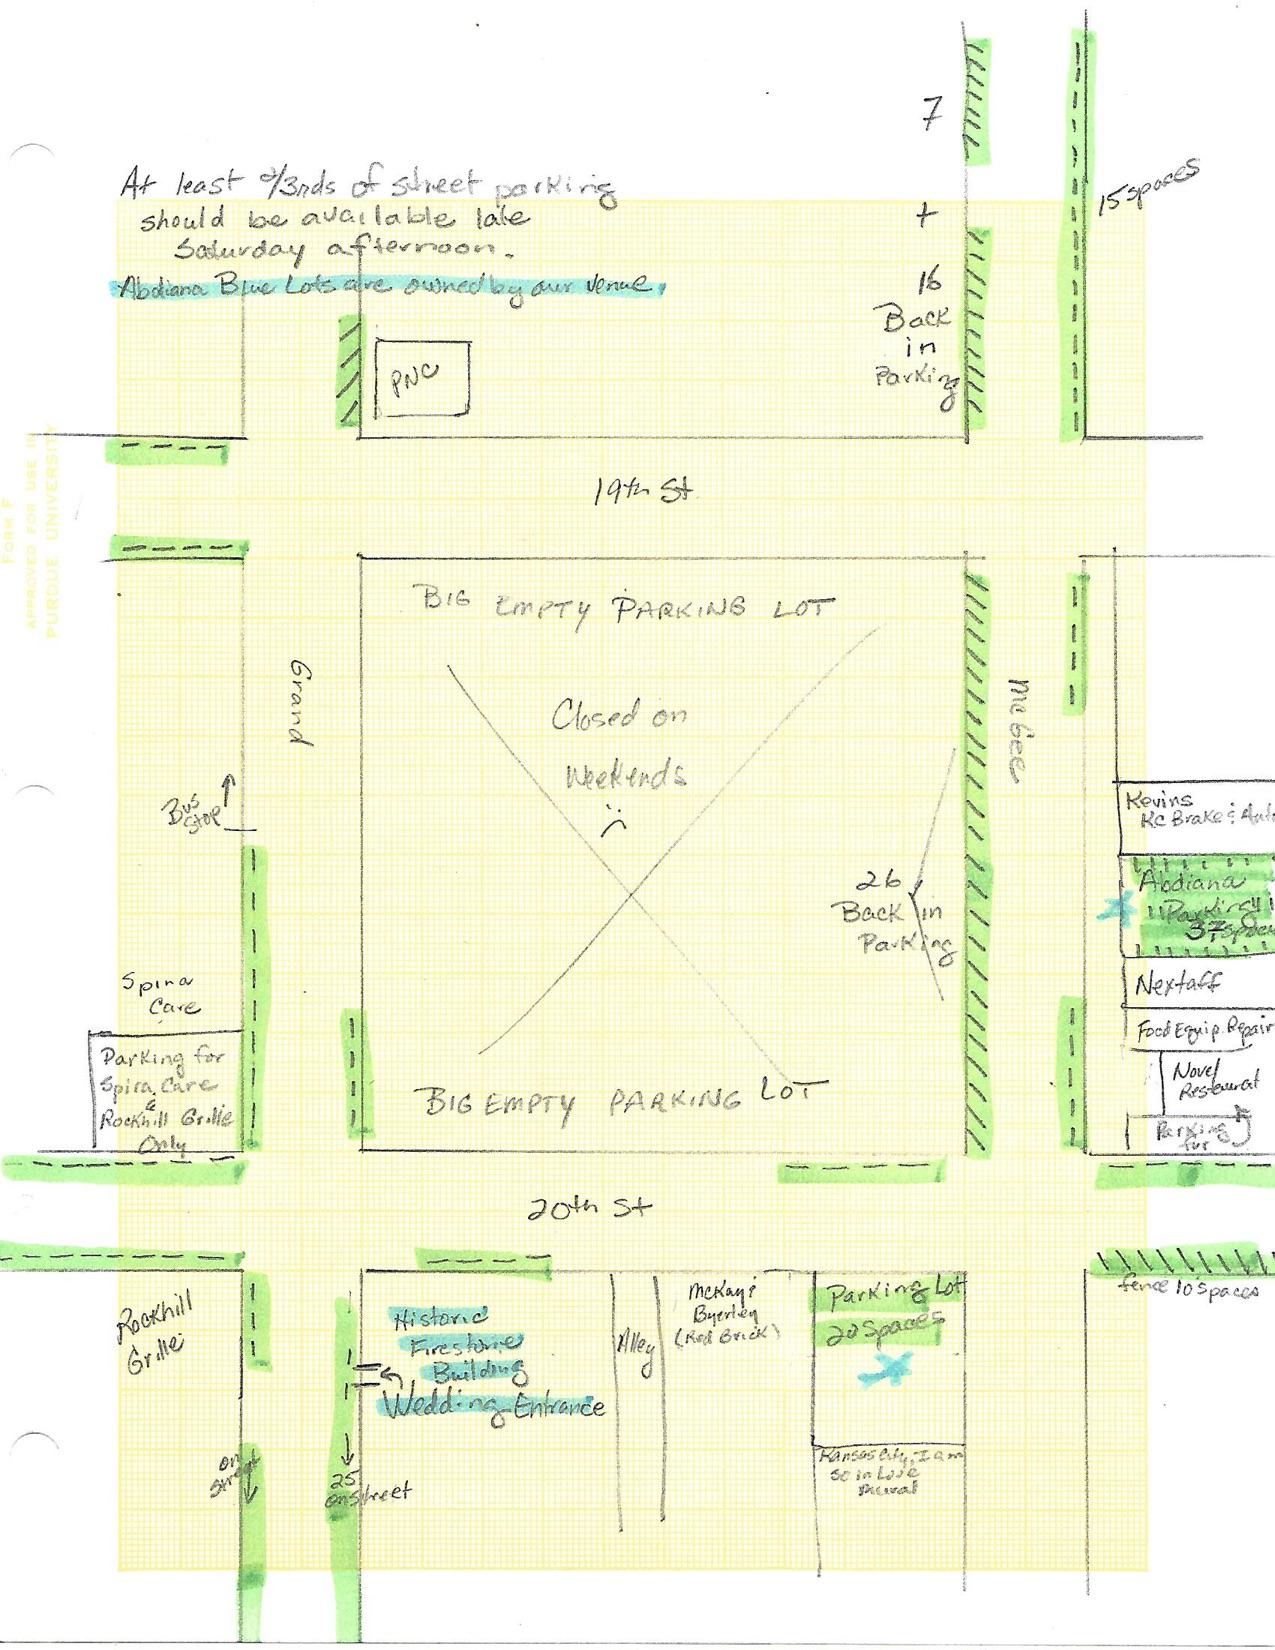 7
At least 2/3rds of street parking
should be available late
Saturday afternoon.
Abdiana Blue Lots are owned by our venue.
+
16
Back
in
Parking
15 spaces
PNC
FORM F
APPROVED FOR USE IN
PURDUE UNIVERSITY
19th St
BIG EMPTY PARKING LOT
Closed on
Weekends
Grand
McGee
Bus
Stop
26
Back in
Parking
Kevins
KC Brake &
Abdiana
Parking
37 Spaces
Nextaff
Food Equip. Repair
Novel
Restaurat
Parking
for
Spira
Care
Parking for
Spira Care
&
Rockhill Grille
Only
BIG EMPTY PARKING LOT
20th St
fence 10 spaces
Rockhill
Grille
Historic
Firestone
Building
Wedding Entrance
Alley
McKay &
Byerley
(Red Brick)
Parking Lot
20 Spaces
Kansas City, I am
so in Love
mural
on
street
25
on street